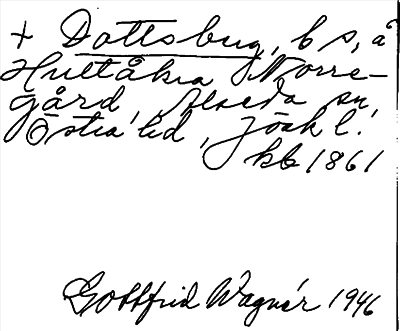 + Dottsbug, b s, å
Hultåkra Norre-
gård, Alseda sn,
Östra hd, Jönk l.
kb 1861
Gottfrid Wagnér 1946